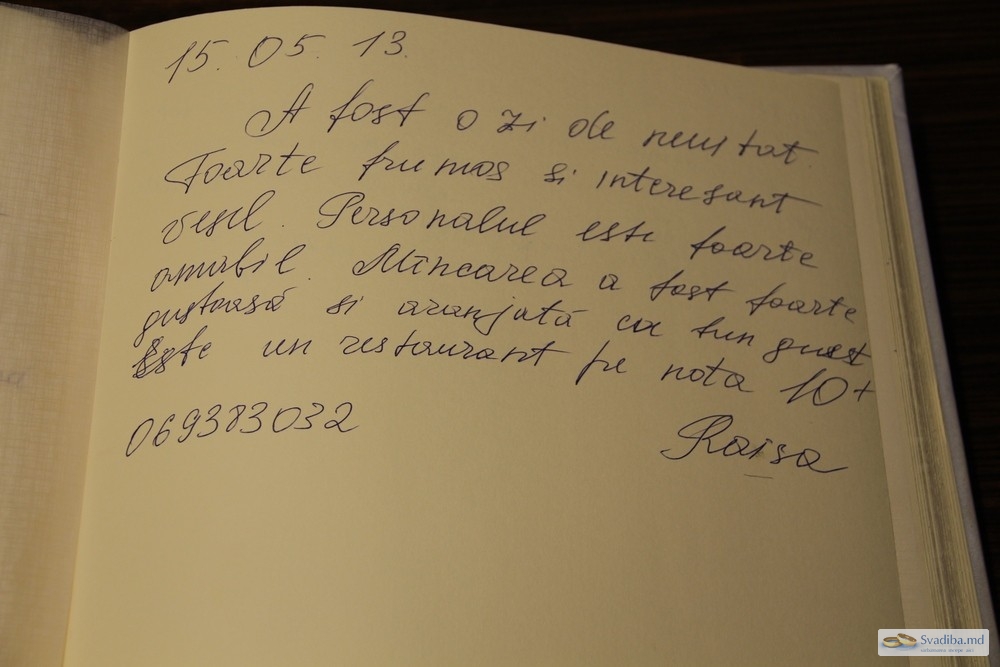 15. 05. 13.
A fost o zi de neuitat.
Foarte frumos si interesant
vesel. Personalul este foarte
amabil. Mîncarea a fost foarte
gustoasă si aranjată cu bun gust
Este un restaurant pe nota 10+
069383032
Raisa
Svadiba.md